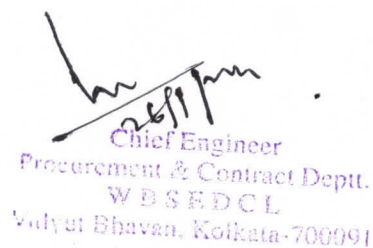 Chief Engineer
Procurement & Contract Deptt.
W B S E D C L
Vidyut Bhavan, Kolkata-700091